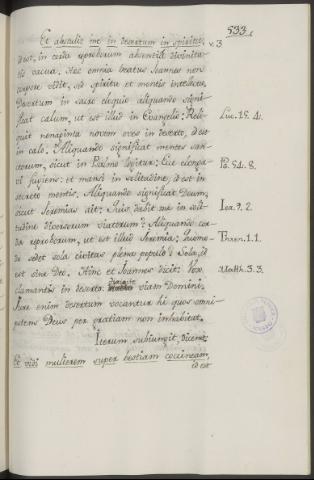 533.
Et abstulit me in desertum in spiritu, v. 3
id est, in corda reproborum absentia divinita-
tis vacua. Hec omnia beatus Joannes non
corpore vidit, sed spiritu et mentis intellectu.
Desertum in sacro eloquio aliquando signi-
ficat celum, ut est illud in Evangelio: Reli- Luc. 15. 4.
quit nonaginta novem oves in deserto, id est
in celo. Aliquando significat mentes sanc-
torum, sicut in Psalmo legitur: Ecce elonga- Ps. 54. 8.
vi fugiens: et mansi in solitudine, id est in
secreto mentis. Aliquando significat Deum,
sicut Jeremias ait: Quis dabit me in soli- Ier. 9. 2.
tudine diversorum viatorum? Aliquando cor-
da reproborum, ut est illud Jeremie: Quomo- Thren. 1. 1.
do sedet sola civitas plena populo? Sola, id
est sine Deo. Hinc et Joannes dicit: Vox Matth. 3. 3.
clamantis in deserto: dirigite viam Domini.
Jure enim desertum vocantur hi quos omni-
potens Deus per gratiam non inhabitat.
Iterum subiungit, dicens:
Et vidi mulierem super bestiam coccineam,
id est